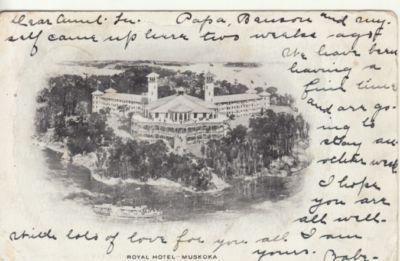 Dear Aunt Lu. Papa, Benson and my-
self came up here two weeks ago.
We have been
having a
fine time
and are go-
ing to
stay an-
other week
I hope
you are
all well-
With lots of love for you all I am
yours. Babe-
ROYAL HOTEL - MUSKOKA